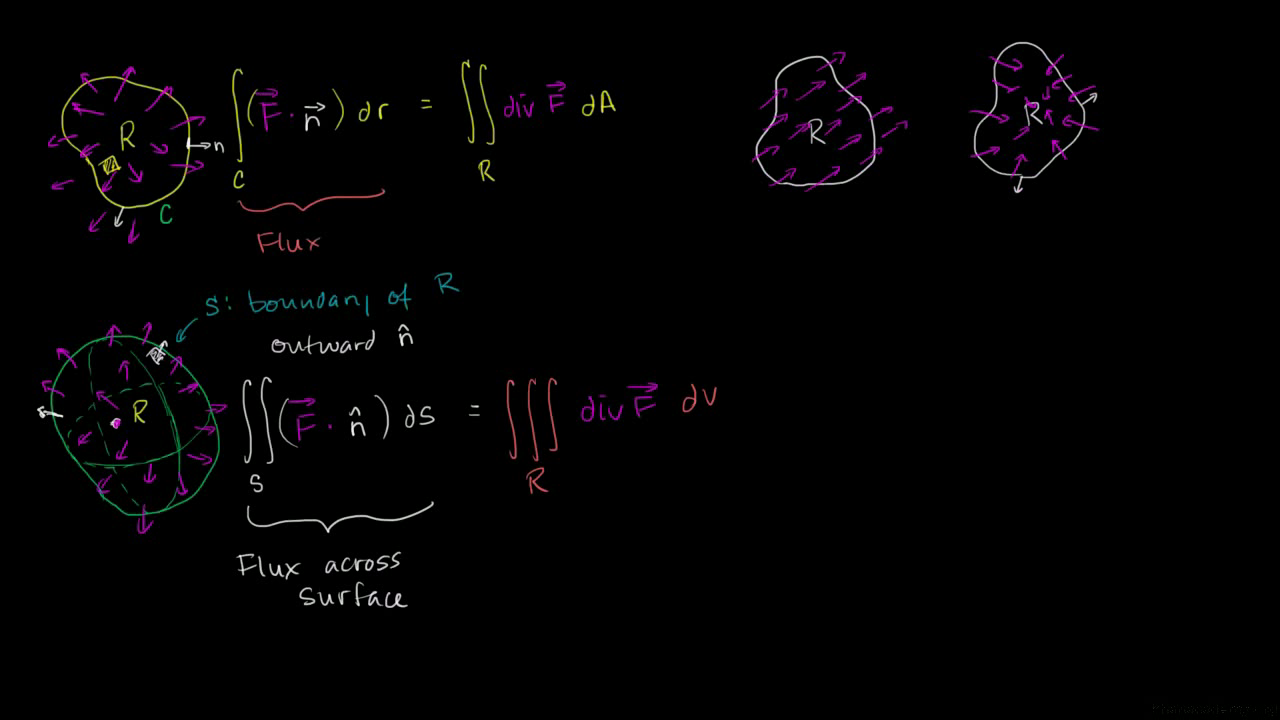 R
n
C
∫_C (F⃗ · n⃗) dr = ∬_R div F⃗ dA
Flux
R
R
S: boundary of R
outward n̂
R
∬_S (F⃗ · n̂) ds = ∭_R div F⃗ dv
Flux across
surface